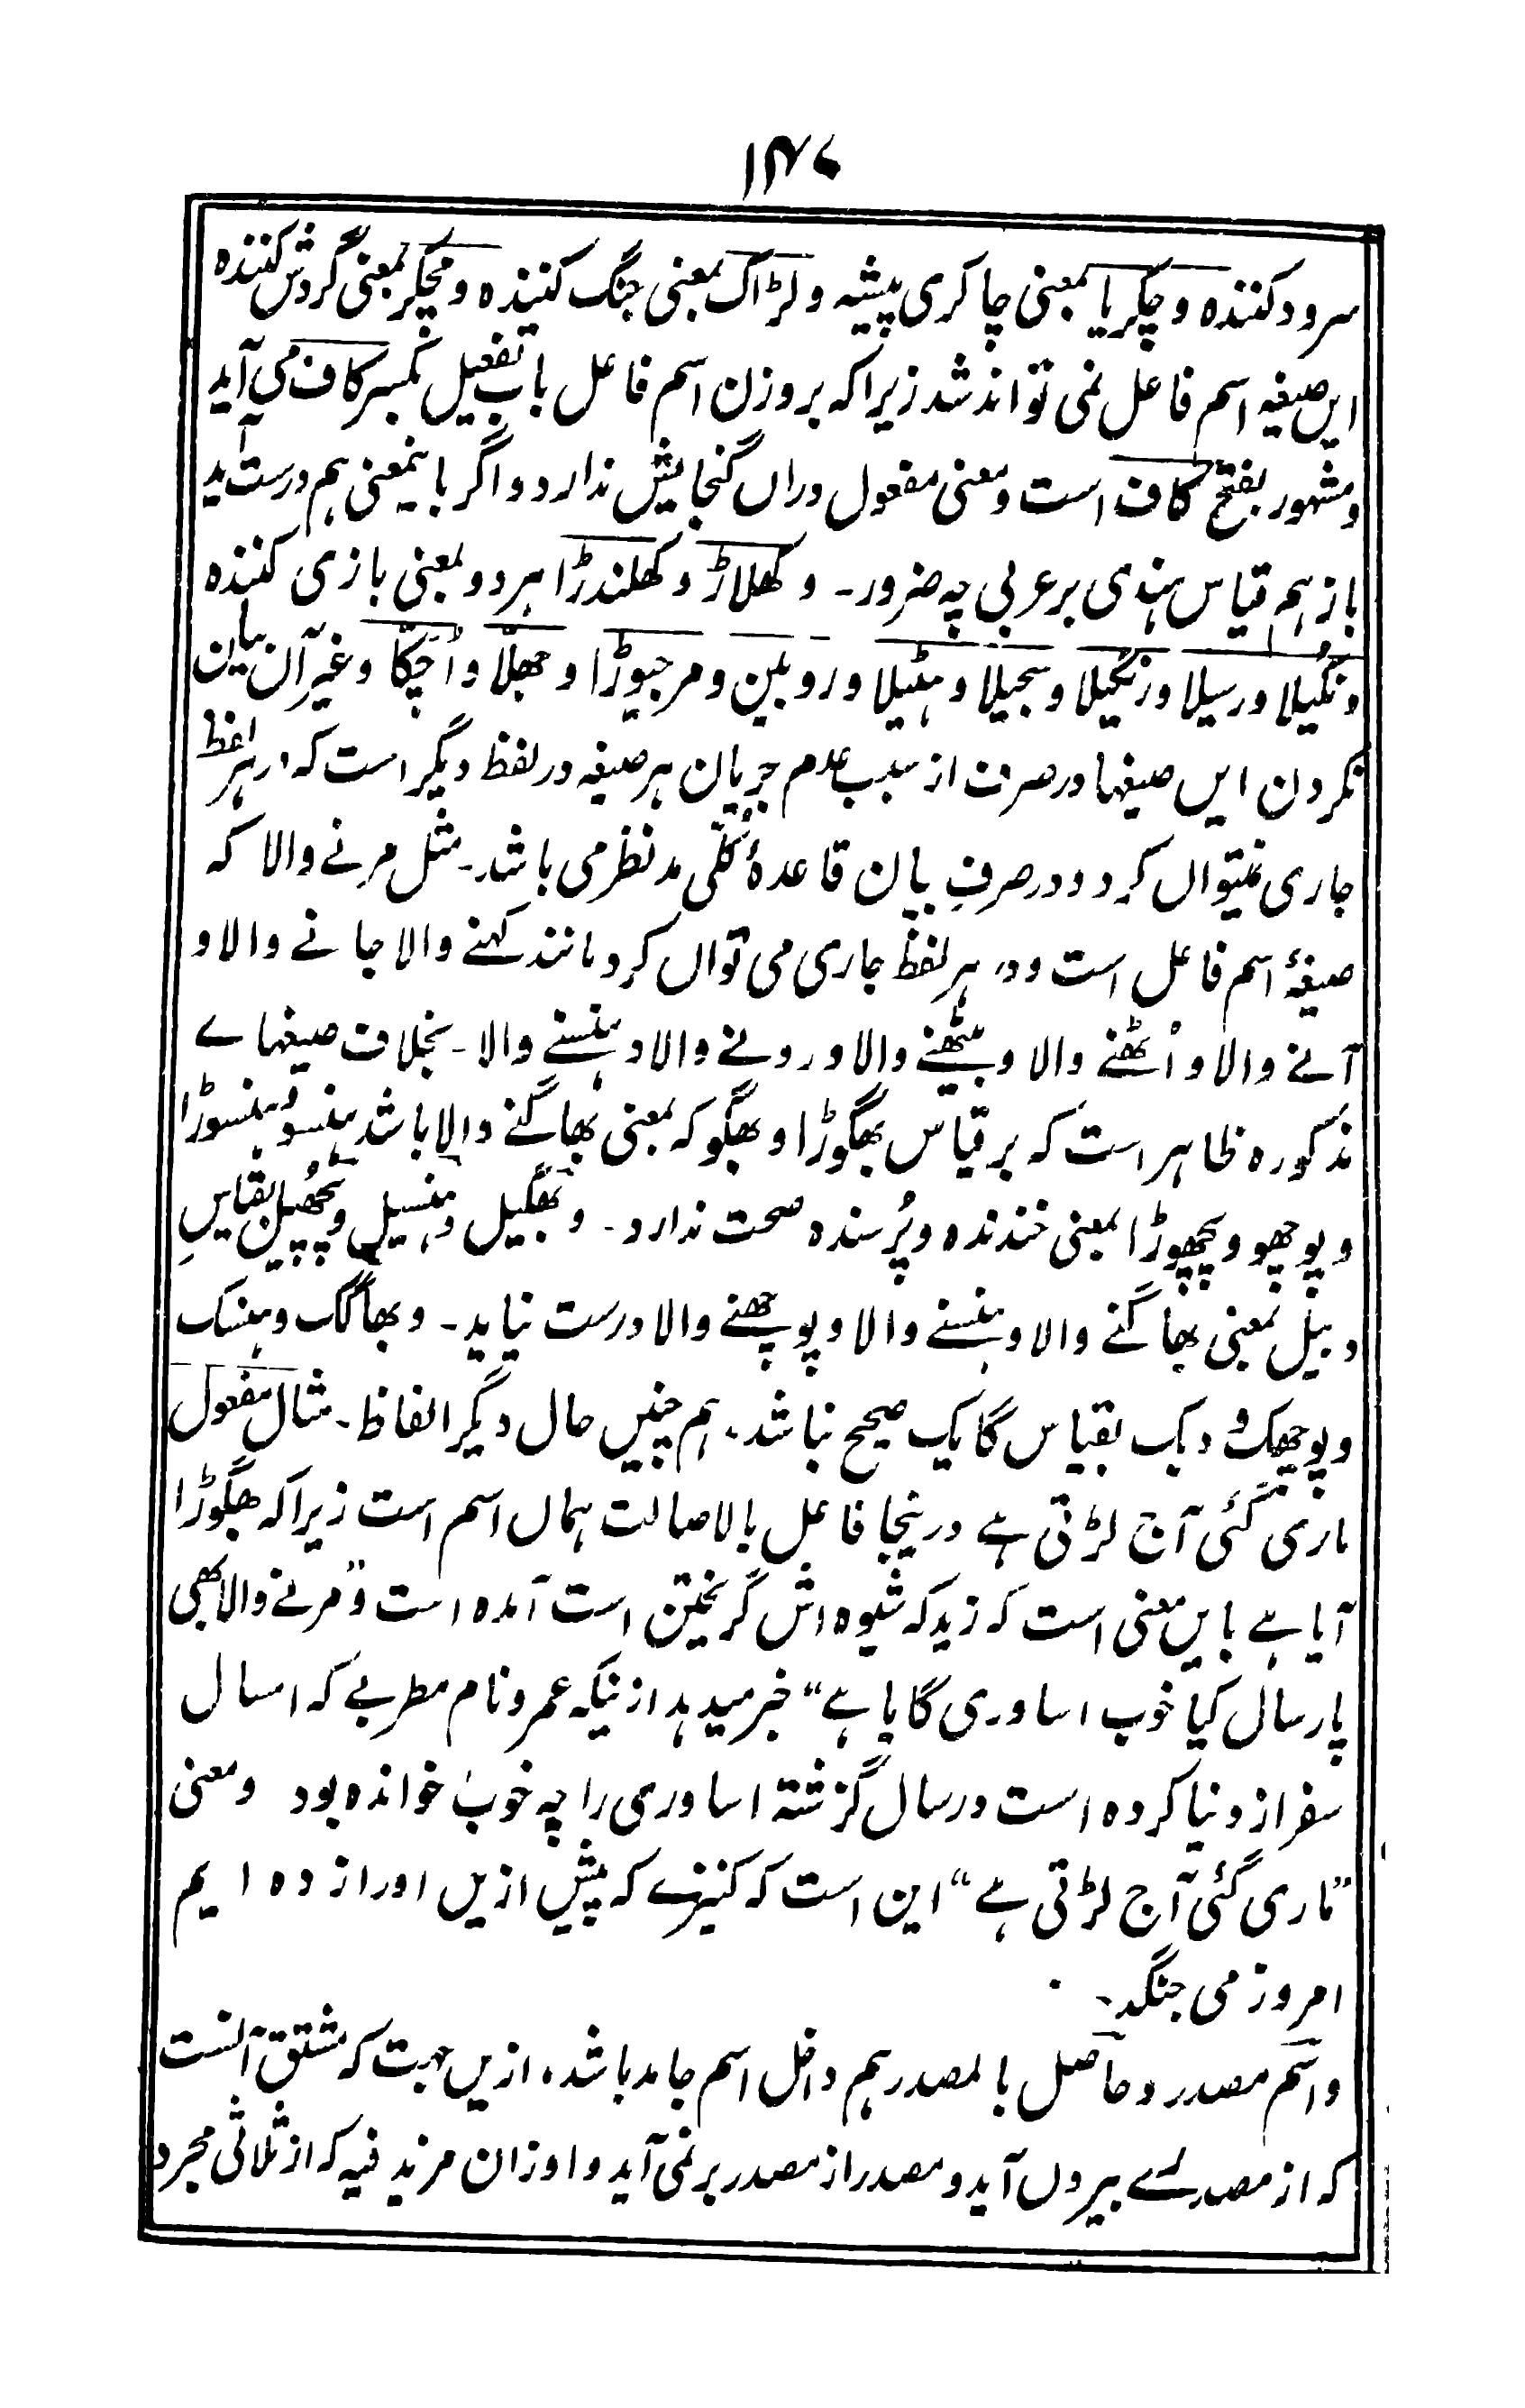 ۱۴۷
سرود کننده و چکریا بمعنی چاکری پیشه و لڑاک بمعنی جنگ کنینده و مچکر بمعنی گردش کننده
ایں صیغه اسم فاعل نمی تواند شد زیراکه بروزن اسم فاعل باب تفعیل بکسر کاف می آید
و مشهور بفتح کاف است و معنی مفعول دراں گنجایش ندارد و اگر باینمعنی هم درست آید
باز هم قیاس هندی بر عربی چه ضرور۔ و کھلاڑ و کھلندڑا هر دو بمعنی بازی کننده
و نکیلا و رسیلا و رنگیلا و سجیلا و ہٹیلا و روبلین و مرجیوڑا و جھلّا و اُچکّا و غیر آن بیان
نکردن ایں صیغها در صرف از سبب عدم جریان هر صیغه در لفظ دیگر است که در هر لفظ
جاری نمیتواں کرد و در صرفِ بیان قاعدهٔ کلّی مدنظر می باشد۔ مثل مرنے والا که
صیغهٔ اسم فاعل است و در هر لفظ جاری می تواں کرد مانند کہنے والا جانے والا و
آنے والا و اُٹھنے والا و بیٹھنے والا و رونے والا و ہنسنے والا۔ بخلاف صیغهاے
مذکوره ظاهر است که بر قیاس بھگوڑا و بھگو که بمعنی بھاگنے والا باشد ہنسو و ہنسوڑا
و پوچھو و پچھوڑا بمعنی خندنده و پُرسنده صحت ندارد۔ و بھگیل و ہنسیل و پچھیل بقیاسِ
دبیل بمعنی بھاگنے والا و ہنسنے والا و پوچھنے والا درست نیاید۔ و بھاگک و ہنسک
و پوچھک و دبک بقیاس گایک صحیح نباشد، هم چنیں حال دیگر الفاظ۔ مثال مفعول
ماری گئی آج لڑتی ہے درینجا فاعل بالاصالت هماں اسم است زیراکه بھگوڑا
آیا ہے بایں معنی است که زید که شیوه اش گریختن است آمده است و "مرنے والا بھی
پارسال کیا خوب اساوری گایا ہے" خبر میدهد ازینکه عمرو نام مطربے که امسال
سفر از دنیا کرده است در سال گزشته اساوری را چه خوب خوانده بود و معنی
"ماری گئی آج لڑتی ہے" این است که کنیزے که پیش ازیں او را زده ایم
امروز می جنگد۔
و اسم مصدر و حاصل بالمصدر هم داخل اسم جامد باشد، ازیں جهت که مشتق آنست
که از مصدرے بیروں آید و مصدر از مصدر بر نمی آید و اوزان مزید فیه که از ثلاثی مجرد